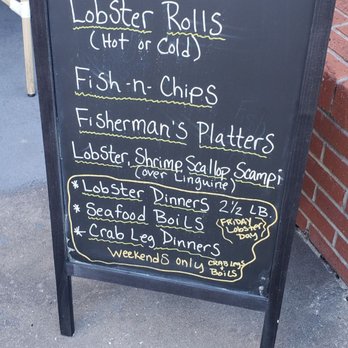 Lobster Rolls
(Hot or Cold)
Fish-n-Chips
Fisherman's Platters
Lobster, Shrimp Scallop Scampi
(over Linguine)
* Lobster Dinners 2 1/2 LB.
* Seafood Boils
FRIDAY
Lobster
DAY
* Crab Leg Dinners
Weekends only
CRAB Legs
BOILS